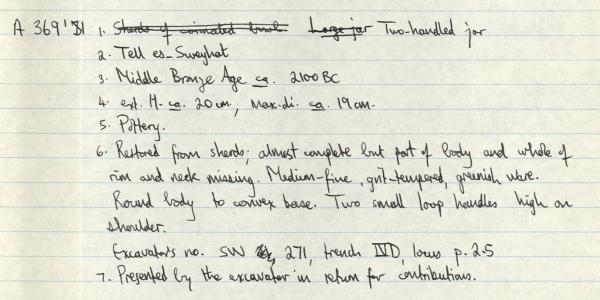 A 369'81 1. Sherds of carinated bowl Large jar Two-handled jar
2. Tell es-Sweyhat
3. Middle Bronze Age ca. 2100 BC
4. ext. H. ca. 20 cm, Max. di. ca. 19 cm.
5. Pottery.
6. Restored from sherds; almost complete but part of body and whole of
rim and neck missing. Medium-fine, grit-tempered, greenish ware.
Round body to convex base. Two small loop handles high on
shoulder.
Excavator's no. SW 271, trench IVD, locus p. 2.5
7. Presented by the excavator in return for contributions.